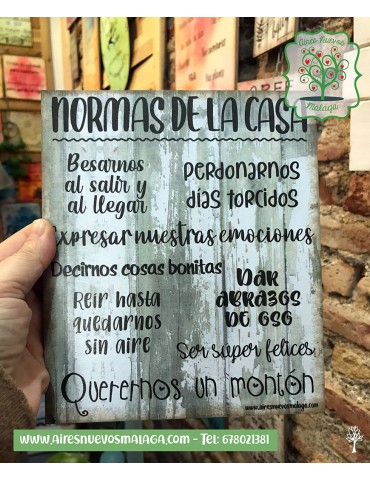 Aires Nuevos
Málaga
NORMAS DE LA CASA
Besarnos
al salir y
al llegar
PERDONARNOS
DÍAS TORCIDOS
Expresar nuestras emociones
Decirnos cosas bonitas
DAR
ABRAZOS
DE OSO
Reír hasta
quedarnos
sin aire
Ser súper felices
Querernos un montón
www.airesnuevosmalaga.com
www.airesnuevosmalaga.com - Tel: 678021381